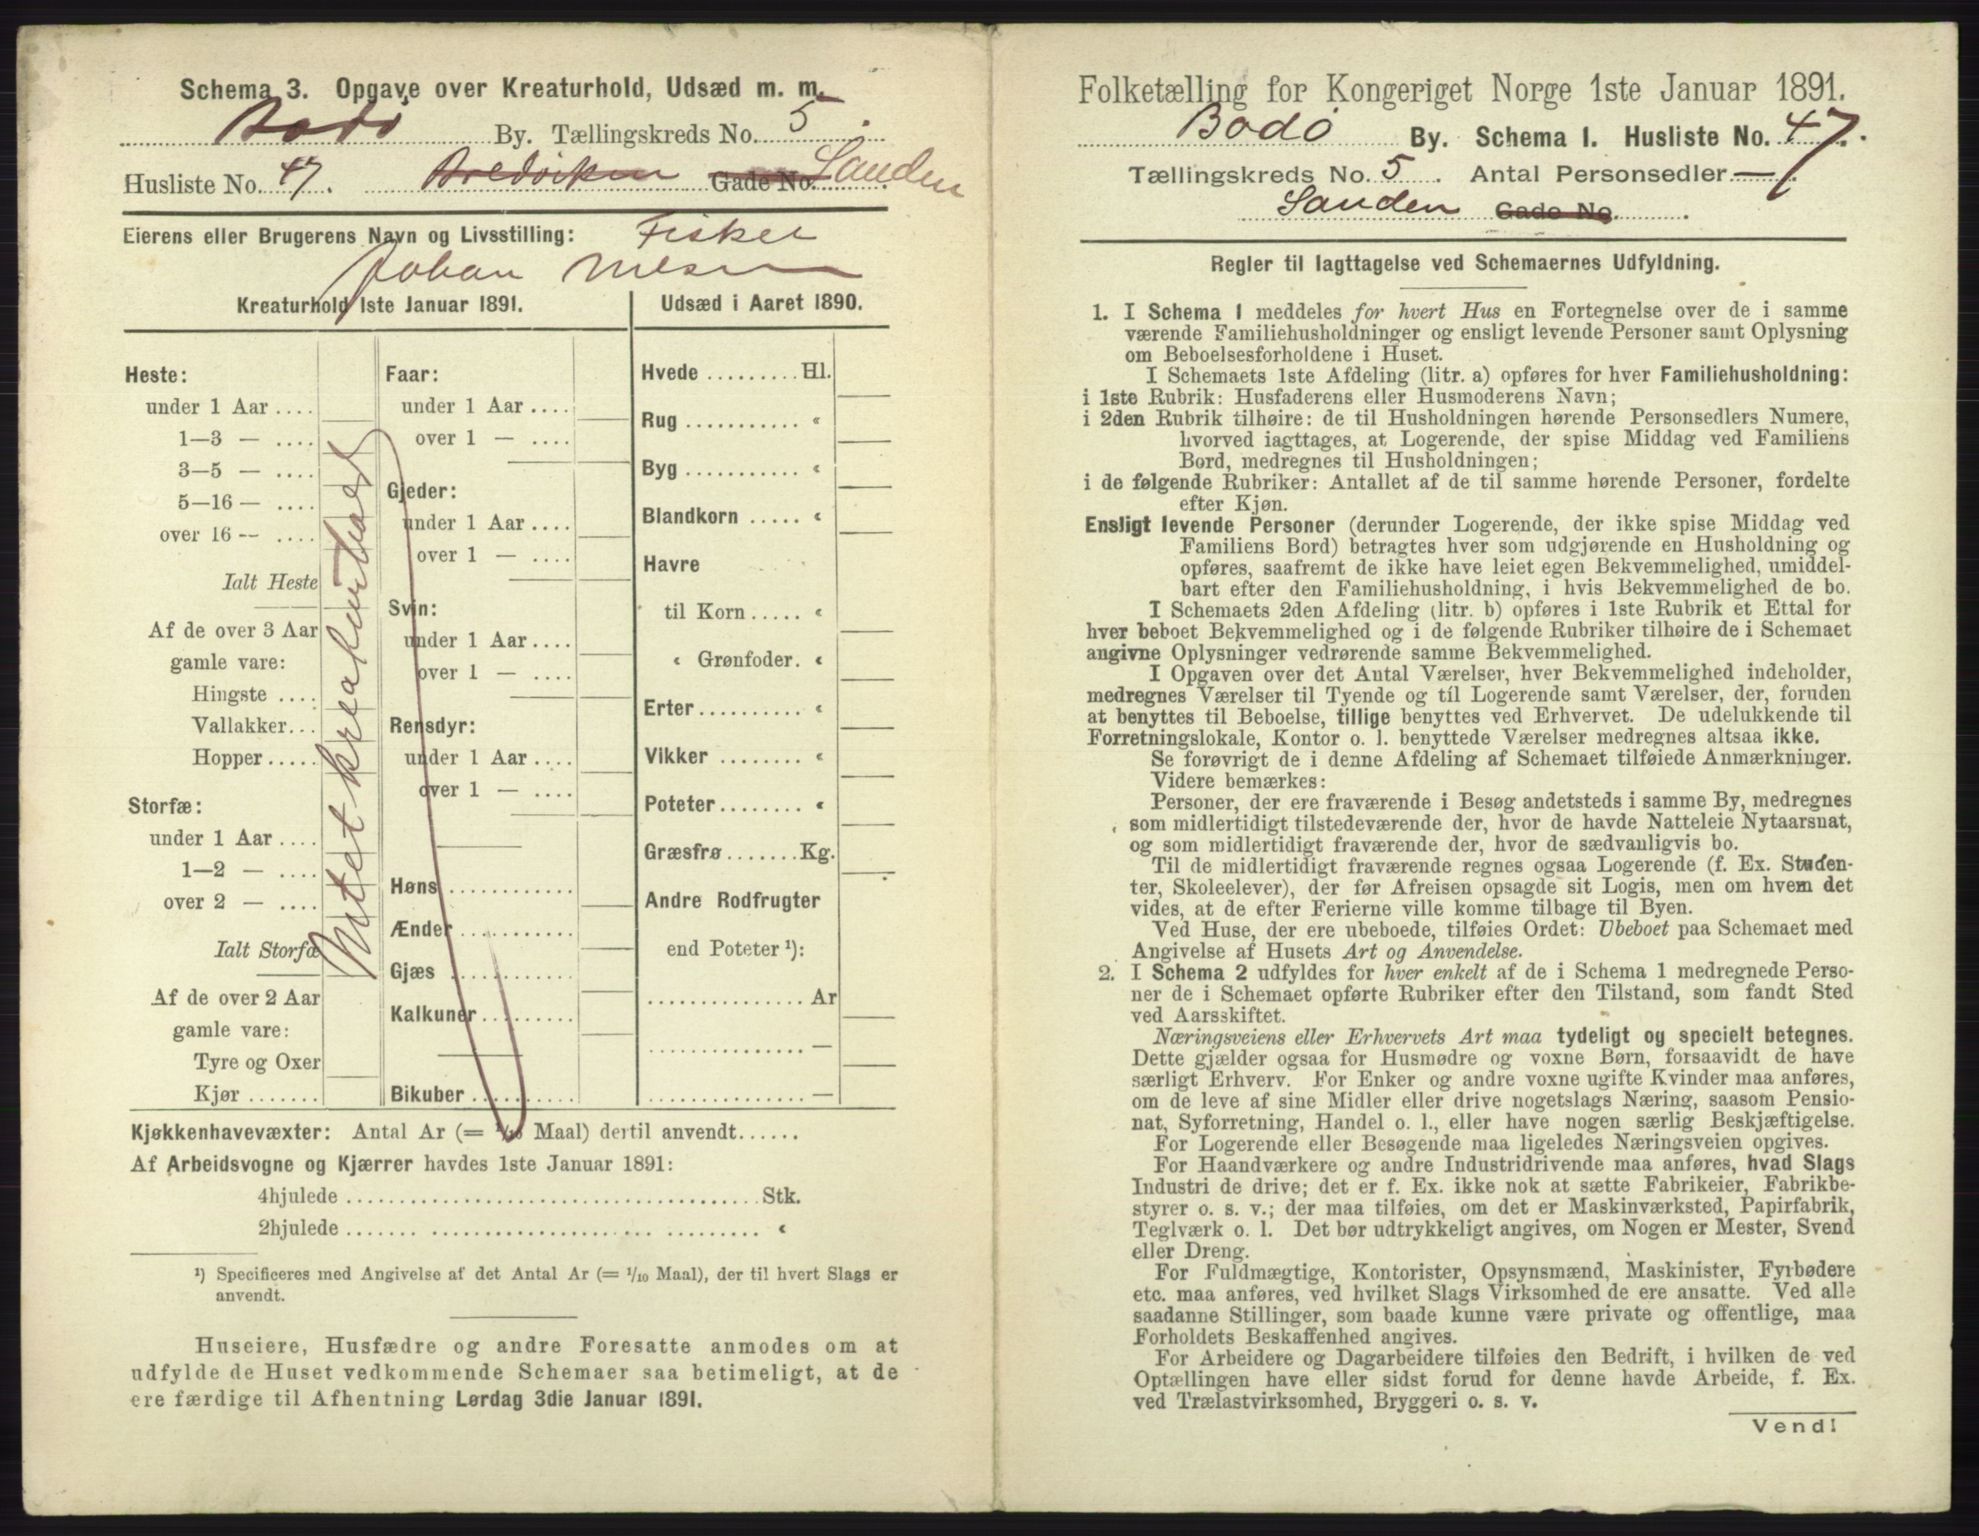 Schema 3. Opgave over Kreaturhold, Udsæd m. m.
Bodø By. Tællingskreds No. 5.
Husliste No. 47. Bredviken Gade No. Sanden
Eierens eller Brugerens Navn og Livsstilling: Fisker
Johan Nilsen
Kreaturhold 1ste Januar 1891.
Heste:
under 1 Aar ....
1—3 — ....
3—5 — ....
5—16 — ....
over 16 — ....
Ialt Heste
Af de over 3 Aar
gamle vare:
Hingste ....
Vallakker...
Hopper.....
Storfæ:
under 1 Aar ....
1—2 — ....
over 2 — ....
Ialt Storfæ
Af de over 2 Aar
gamle vare:
Tyre og Oxer
Kjør .......
Intet kreaturhold
Faar:
under 1 Aar ....
over 1 — ....
Gjeder:
under 1 Aar ....
over 1 — ....
Svin:
under 1 Aar ....
over 1 — ....
Rensdyr:
under 1 Aar ....
over 1 — ....
Høns ...........
Ænder ..........
Gjæs ...........
Kalkuner ........
Bikuber .........
Udsæd i Aaret 1890.
Hvede ......... Hl.
Rug ........... «
Byg ........... «
Blandkorn ..... «
Havre
til Korn ..... «
« Grønfoder. «
Erter ......... «
Vikker ........ «
Poteter ........ «
Græsfrø ....... Kg.
Andre Rodfrugter
end Poteter ¹):
............... Ar
............... —
............... —
Kjøkkenhavevæxter: Antal Ar (= 1/10 Maal) dertil anvendt......
Af Arbeidsvogne og Kjærrer havdes 1ste Januar 1891:
4hjulede ........................................ Stk.
2hjulede ........................................ «
¹) Specificeres med Angivelse af det Antal Ar (= 1/10 Maal), der til hvert Slags er
anvendt.
Huseiere, Husfædre og andre Foresatte anmodes om at
udfylde de Huset vedkommende Schemaer saa betimeligt, at de
ere færdige til Afhentning Lørdag 3die Januar 1891.
Folketælling for Kongeriget Norge 1ste Januar 1891.
Bodø By. Schema I. Husliste No. 47.
Tællingskreds No. 5. Antal Personsedler 7
Sanden Gade No.
Regler til Iagttagelse ved Schemaernes Udfyldning.
1. I Schema 1 meddeles for hvert Hus en Fortegnelse over de i samme
værende Familiehusholdninger og ensligt levende Personer samt Oplysning
om Beboelsesforholdene i Huset.
I Schemaets 1ste Afdeling (litr. a) opføres for hver Familiehusholdning:
i 1ste Rubrik: Husfaderens eller Husmoderens Navn;
i 2den Rubrik tilhøire: de til Husholdningen hørende Personsedlers Numere,
hvorved iagttages, at Logerende, der spise Middag ved Familiens
Bord, medregnes til Husholdningen;
i de følgende Rubriker: Antallet af de til samme hørende Personer, fordelte
efter Kjøn.
Ensligt levende Personer (derunder Logerende, der ikke spise Middag ved
Familiens Bord) betragtes hver som udgjørende en Husholdning og
opføres, saafremt de ikke have leiet egen Bekvemmelighed, umiddel-
bart efter den Familiehusholdning, i hvis Bekvemmelighed de bo.
I Schemaets 2den Afdeling (litr. b) opføres i 1ste Rubrik et Ettal for
hver beboet Bekvemmelighed og i de følgende Rubriker tilhøire de i Schemaet
angivne Oplysninger vedrørende samme Bekvemmelighed.
I Opgaven over det Antal Værelser, hver Bekvemmelighed indeholder,
medregnes Værelser til Tyende og til Logerende samt Værelser, der, foruden
at benyttes til Beboelse, tillige benyttes ved Erhvervet. De udelukkende til
Forretningslokale, Kontor o. l. benyttede Værelser medregnes altsaa ikke.
Se forøvrigt de i denne Afdeling af Schemaet tilføiede Anmærkninger.
Videre bemærkes:
Personer, der ere fraværende i Besøg andetsteds i samme By, medregnes
som midlertidigt tilstedeværende der, hvor de havde Natteleie Nytaarsnat,
og som midlertidigt fraværende der, hvor de sædvanligvis bo.
Til de midlertidigt fraværende regnes ogsaa Logerende (f. Ex. Studen-
ter, Skoleelever), der før Afreisen opsagde sit Logis, men om hvem det
vides, at de efter Ferierne ville komme tilbage til Byen.
Ved Huse, der ere ubeboede, tilføies Ordet: Ubeboet paa Schemaet med
Angivelse af Husets Art og Anvendelse.
2. I Schema 2 udfyldes for hver enkelt af de i Schema 1 medregnede Perso-
ner de i Schemaet opførte Rubriker efter den Tilstand, som fandt Sted
ved Aarsskiftet.
Næringsveiens eller Erhvervets Art maa tydeligt og specielt betegnes.
Dette gjælder ogsaa for Husmødre og voxne Børn, forsaavidt de have
særligt Erhverv. For Enker og andre voxne ugifte Kvinder maa anføres,
om de leve af sine Midler eller drive nogetslags Næring, saasom Pensio-
nat, Syforretning, Handel o. l., eller have nogen særlig Beskjæftigelse.
For Logerende eller Besøgende maa ligeledes Næringsveien opgives.
For Haandværkere og andre Industridrivende maa anføres, hvad Slags
Industri de drive; det er f. Ex. ikke nok at sætte Fabrikeier, Fabrikbe-
styrer o. s. v.; der maa tilføies, om det er Maskinværksted, Papirfabrik,
Teglværk o. l. Det bør udtrykkeligt angives, om Nogen er Mester, Svend
eller Dreng.
For Fuldmægtige, Kontorister, Opsynsmænd, Maskinister, Fyrbødere
etc. maa anføres, ved hvilket Slags Virksomhed de ere ansatte. Ved alle
saadanne Stillinger, som baade kunne være private og offentlige, maa
Forholdets Beskaffenhed angives.
For Arbeidere og Dagarbeidere tilføies den Bedrift, i hvilken de ved
Optællingen have eller sidst forud for denne havde Arbeide, f. Ex.
ved Trælastvirksomhed, Bryggeri o. s. v.
Vend!